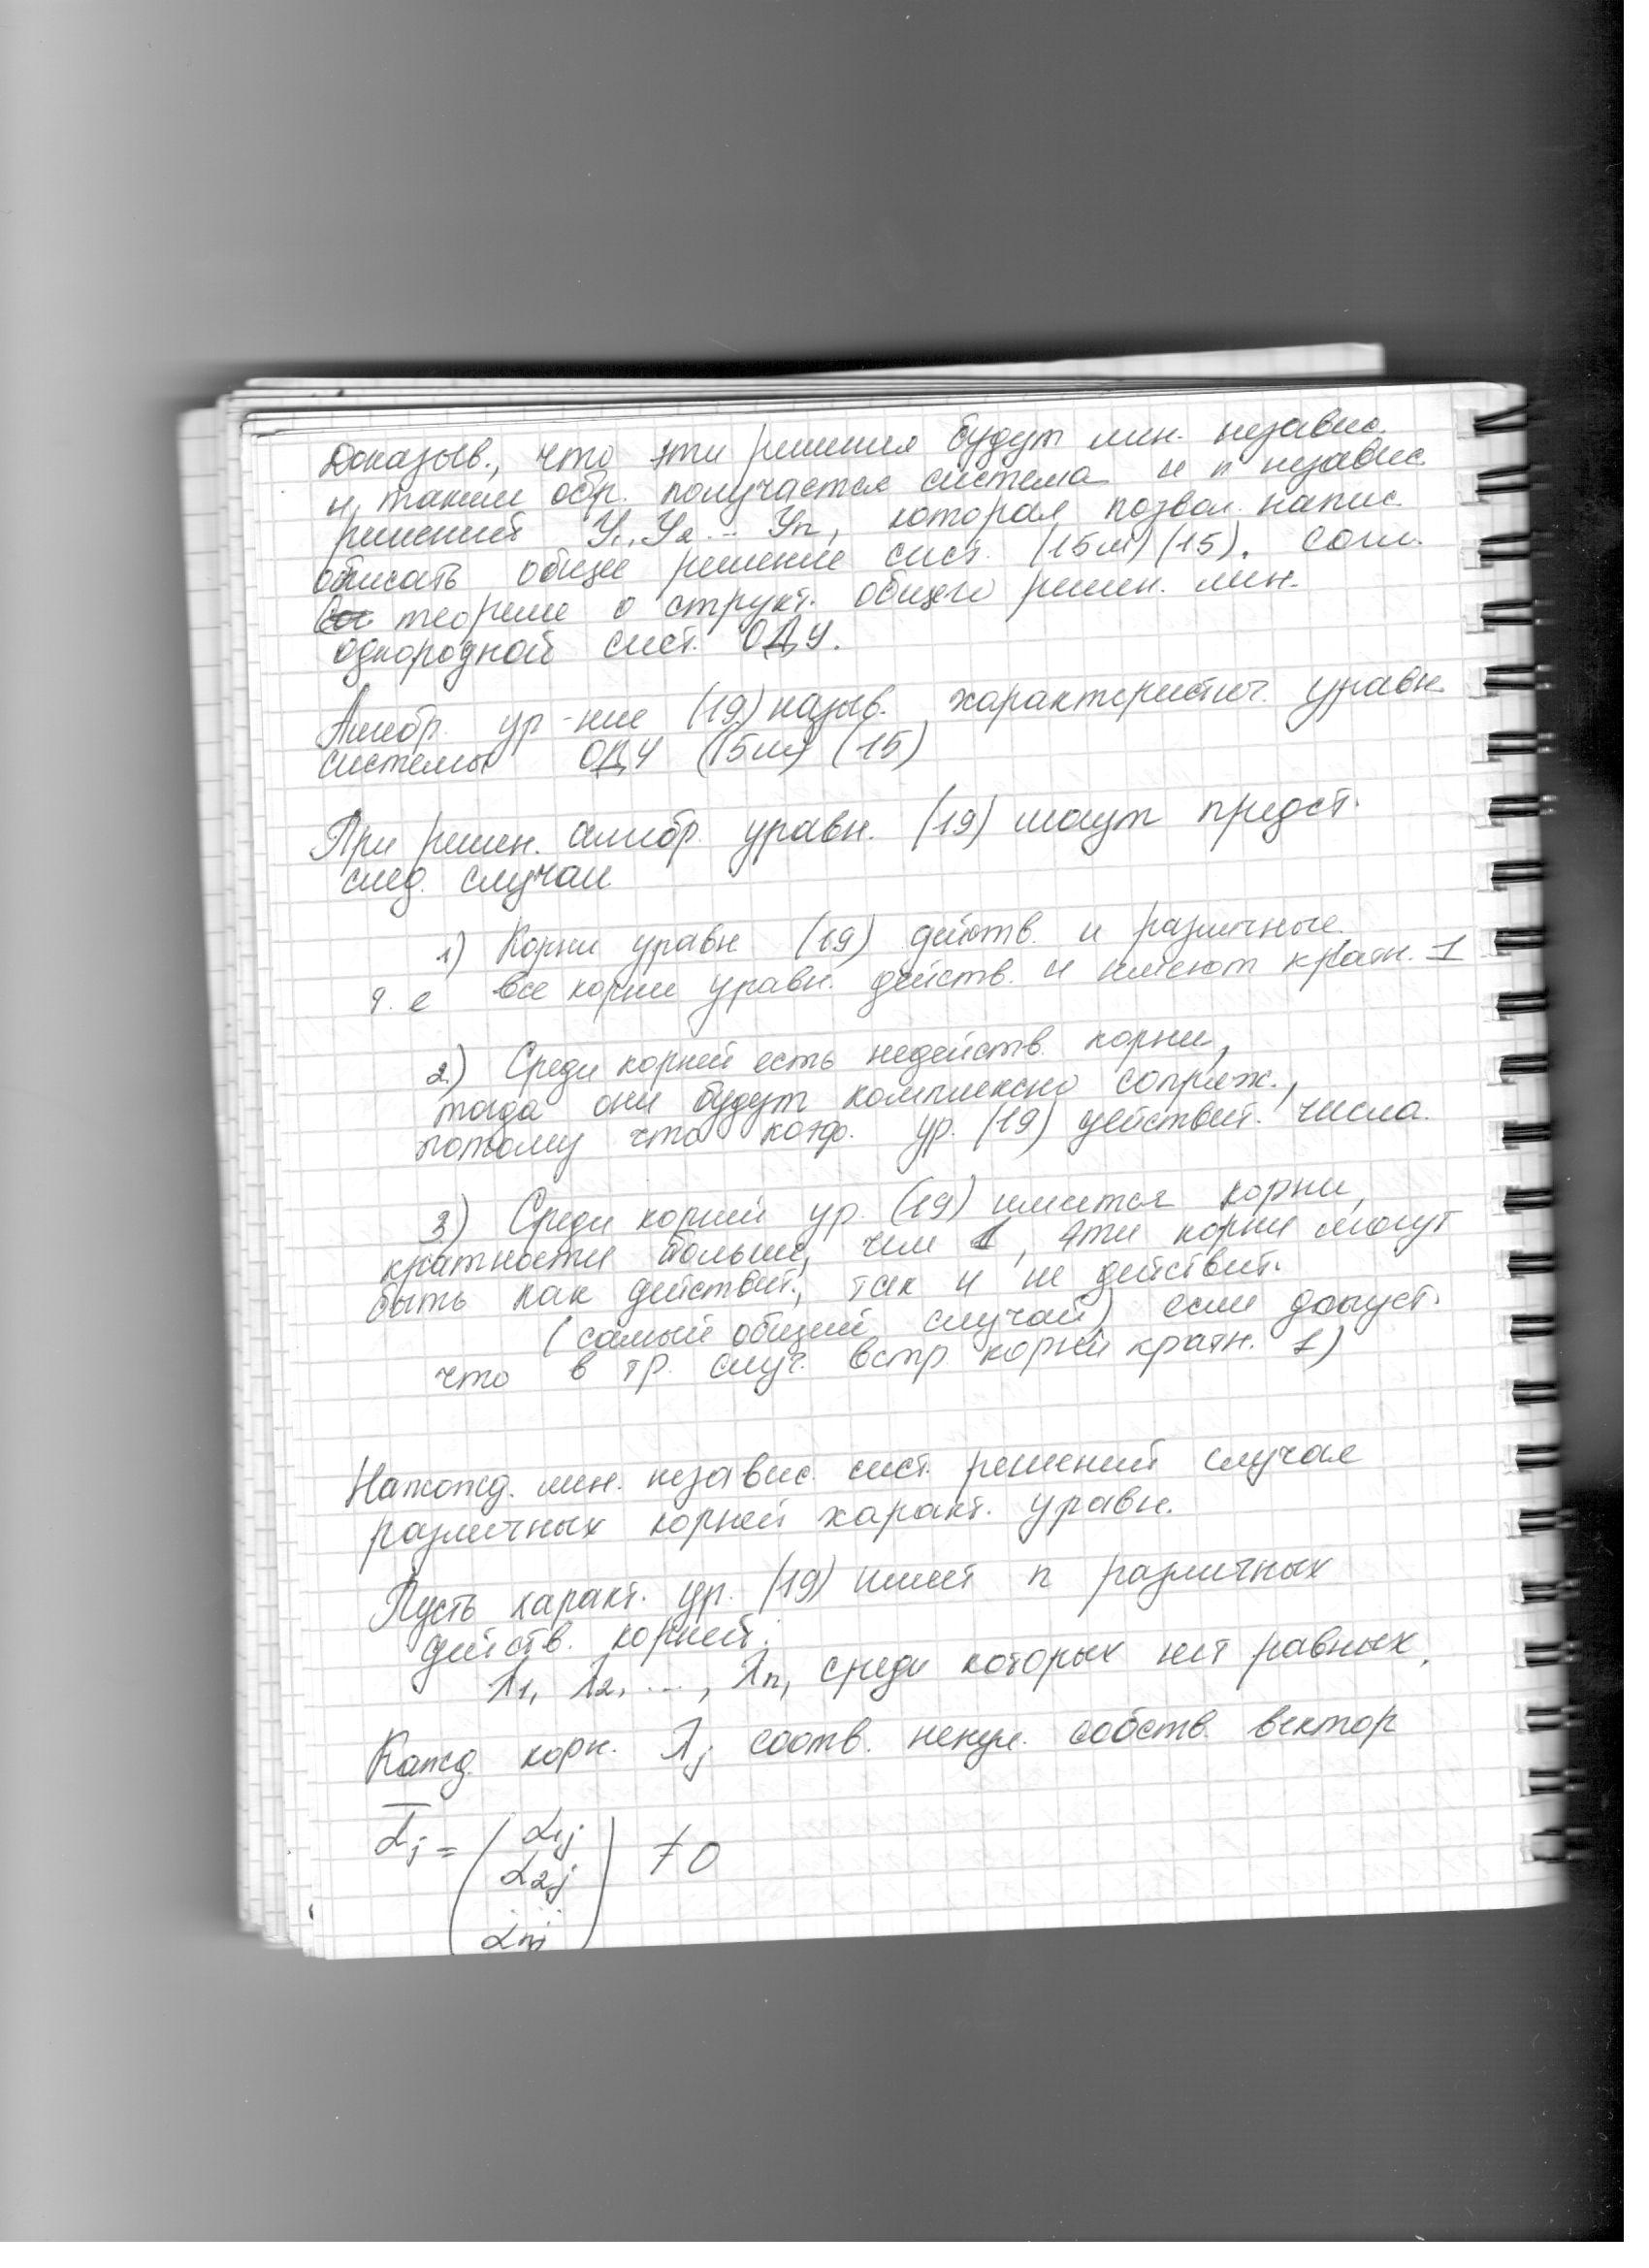 Доказыв., что эти решения будут лин. независ.
и, таким обр. получается система и n независ.
решений y₁, y₂ ... yₙ, которая позвол. напис.
описать общее решение сист. (15м) (15). Согл.
теореме о структ. общего решен. лин.
однородной сист. ОДУ.
Алгебр. ур-ние (19) назыв. характеристич. уравн.
системы ОДУ (15м) (15)
При решен. алгебр. уравн. (19) могут предст.
след. случаи
1) Корни уравн (19) действ. и различные.
т. е все корни уравн. действ. и имеют кратн. 1
2) Среди корней есть недейств. корни,
тогда они будут комплексно сопряж.,
потому что коэф. ур. (19) действит. числа.
3) Среди корней ур. (19) имеются корни,
кратности больше, чем 1, эти корни могут
быть как действит., так и не действит.
(самый общий случай) если допуст.
что в тр. случ. встр. корни кратн. 1)
Нахожд. лин. независ. сист. решений случая
различных корней характ. уравн.
Пусть характ. ур. (19) имеет n различных
действ. корней:
λ₁, λ₂, ..., λₙ, среди которых нет равных.
Кажд. корн. λⱼ соотв. ненул. собств. вектор
ᾱⱼ = ( α₁ⱼ
α₂ⱼ
...
αₙⱼ ) ≠ 0